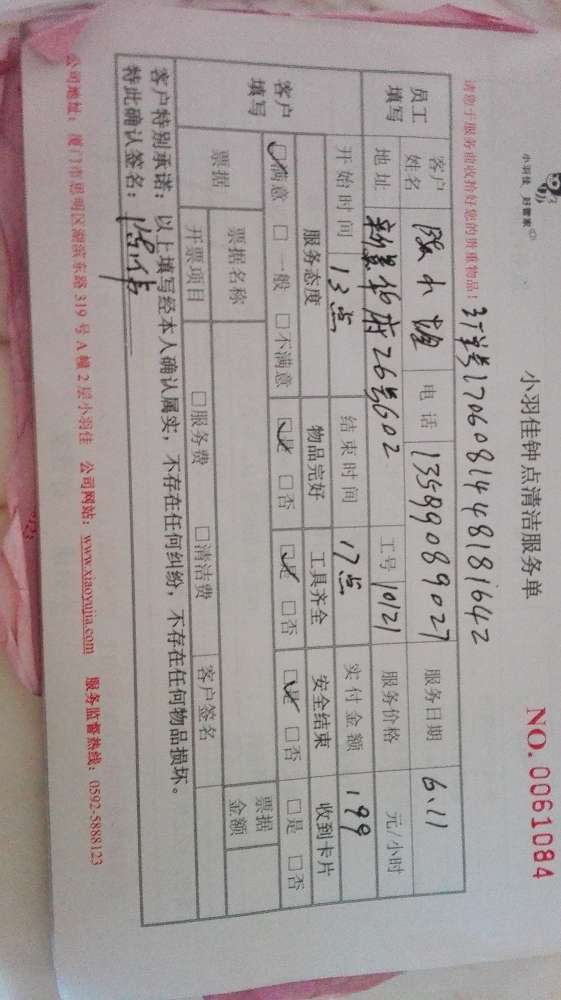 小羽佳 好管家
小羽佳钟点清洁服务单
NO. 0061084
请您于服务前收拾好您的贵重物品!
1706081448181642
员工填写 客户姓名 电话 13599089027 服务日期 6.11
地址 新景华府26号602 工号 10121 服务价格 元/小时
开始时间 13点 结束时间 17点 实付金额 199
客户填写 服务态度 物品完好 工具齐全 安全结束 收到卡片
☑满意 □一般 □不满意 ☑是 □否 ☑是 □否 ☑是 □否 □是 □否
票据 票据名称 票据金额
开票项目 □服务费 □清洁费 客户签名
客户特别承诺: 以上填写经本人确认属实, 不存在任何纠纷, 不存在任何物品损坏。
特此确认签名:
公司地址: 厦门市思明区湖滨东路 319 号 A 幢 2 层小羽佳 公司网站: www.xiaoyujia.com 服务监督热线: 0592-5888123